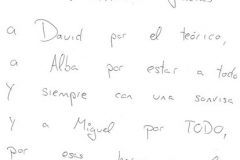 a David por el teórico,
a Alba por estar a todo
y siempre con una sonrisa
y a Miguel por TODO,
por esas